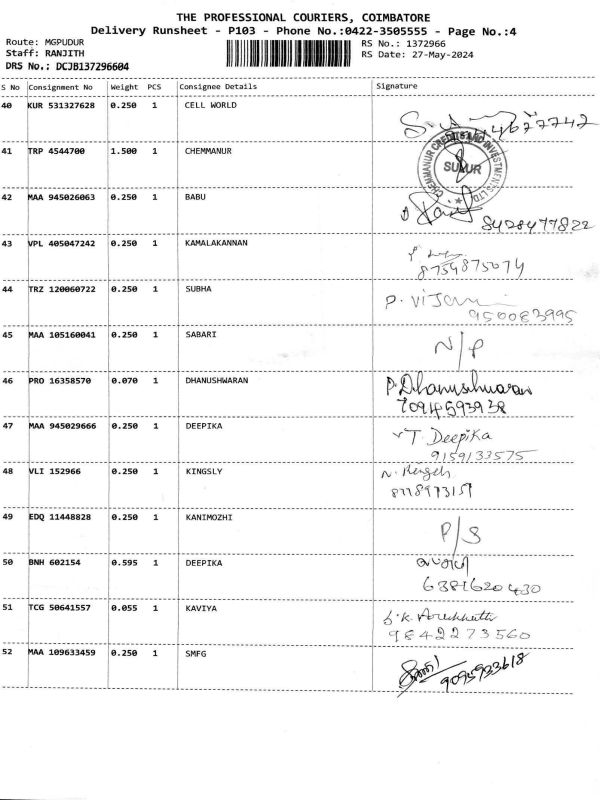 THE PROFESSIONAL COURIERS, COIMBATORE
Delivery Runsheet - P103 - Phone No.:0422-3505555 - Page No.:4
Route: MGPUDUR RS No.: 1372966
Staff: RANJITH RS Date: 27-May-2024
DRS No.: DCJB137296604
S No Consignment No Weight PCS Consignee Details Signature
40 KUR 531327628 0.250 1 CELL WORLD
41 TRP 4544700 1.500 1 CHEMMANUR
CHEMMANUR CREDITS AND INVESTMENTS LTD.
SULUR
42 MAA 945026063 0.250 1 BABU
8428477822
43 VPL 405047242 0.250 1 KAMALAKANNAN
8754875074
44 TRZ 120060722 0.250 1 SUBHA
P. Vijay
950083995
45 MAA 105160041 0.250 1 SABARI
N/P
46 PRO 16358570 0.070 1 DHANUSHWARAN
P. Dhanushwaran
7094593938
47 MAA 945029666 0.250 1 DEEPIKA
T. Deepika
9159133575
48 VLI 152966 0.250 1 KINGSLY
49 EDQ 11448828 0.250 1 KANIMOZHI
P/S
50 BNH 602154 0.595 1 DEEPIKA
6381620430
51 TCG 50641557 0.055 1 KAVIYA
9842273560
52 MAA 109633459 0.250 1 SMFG
9095933618